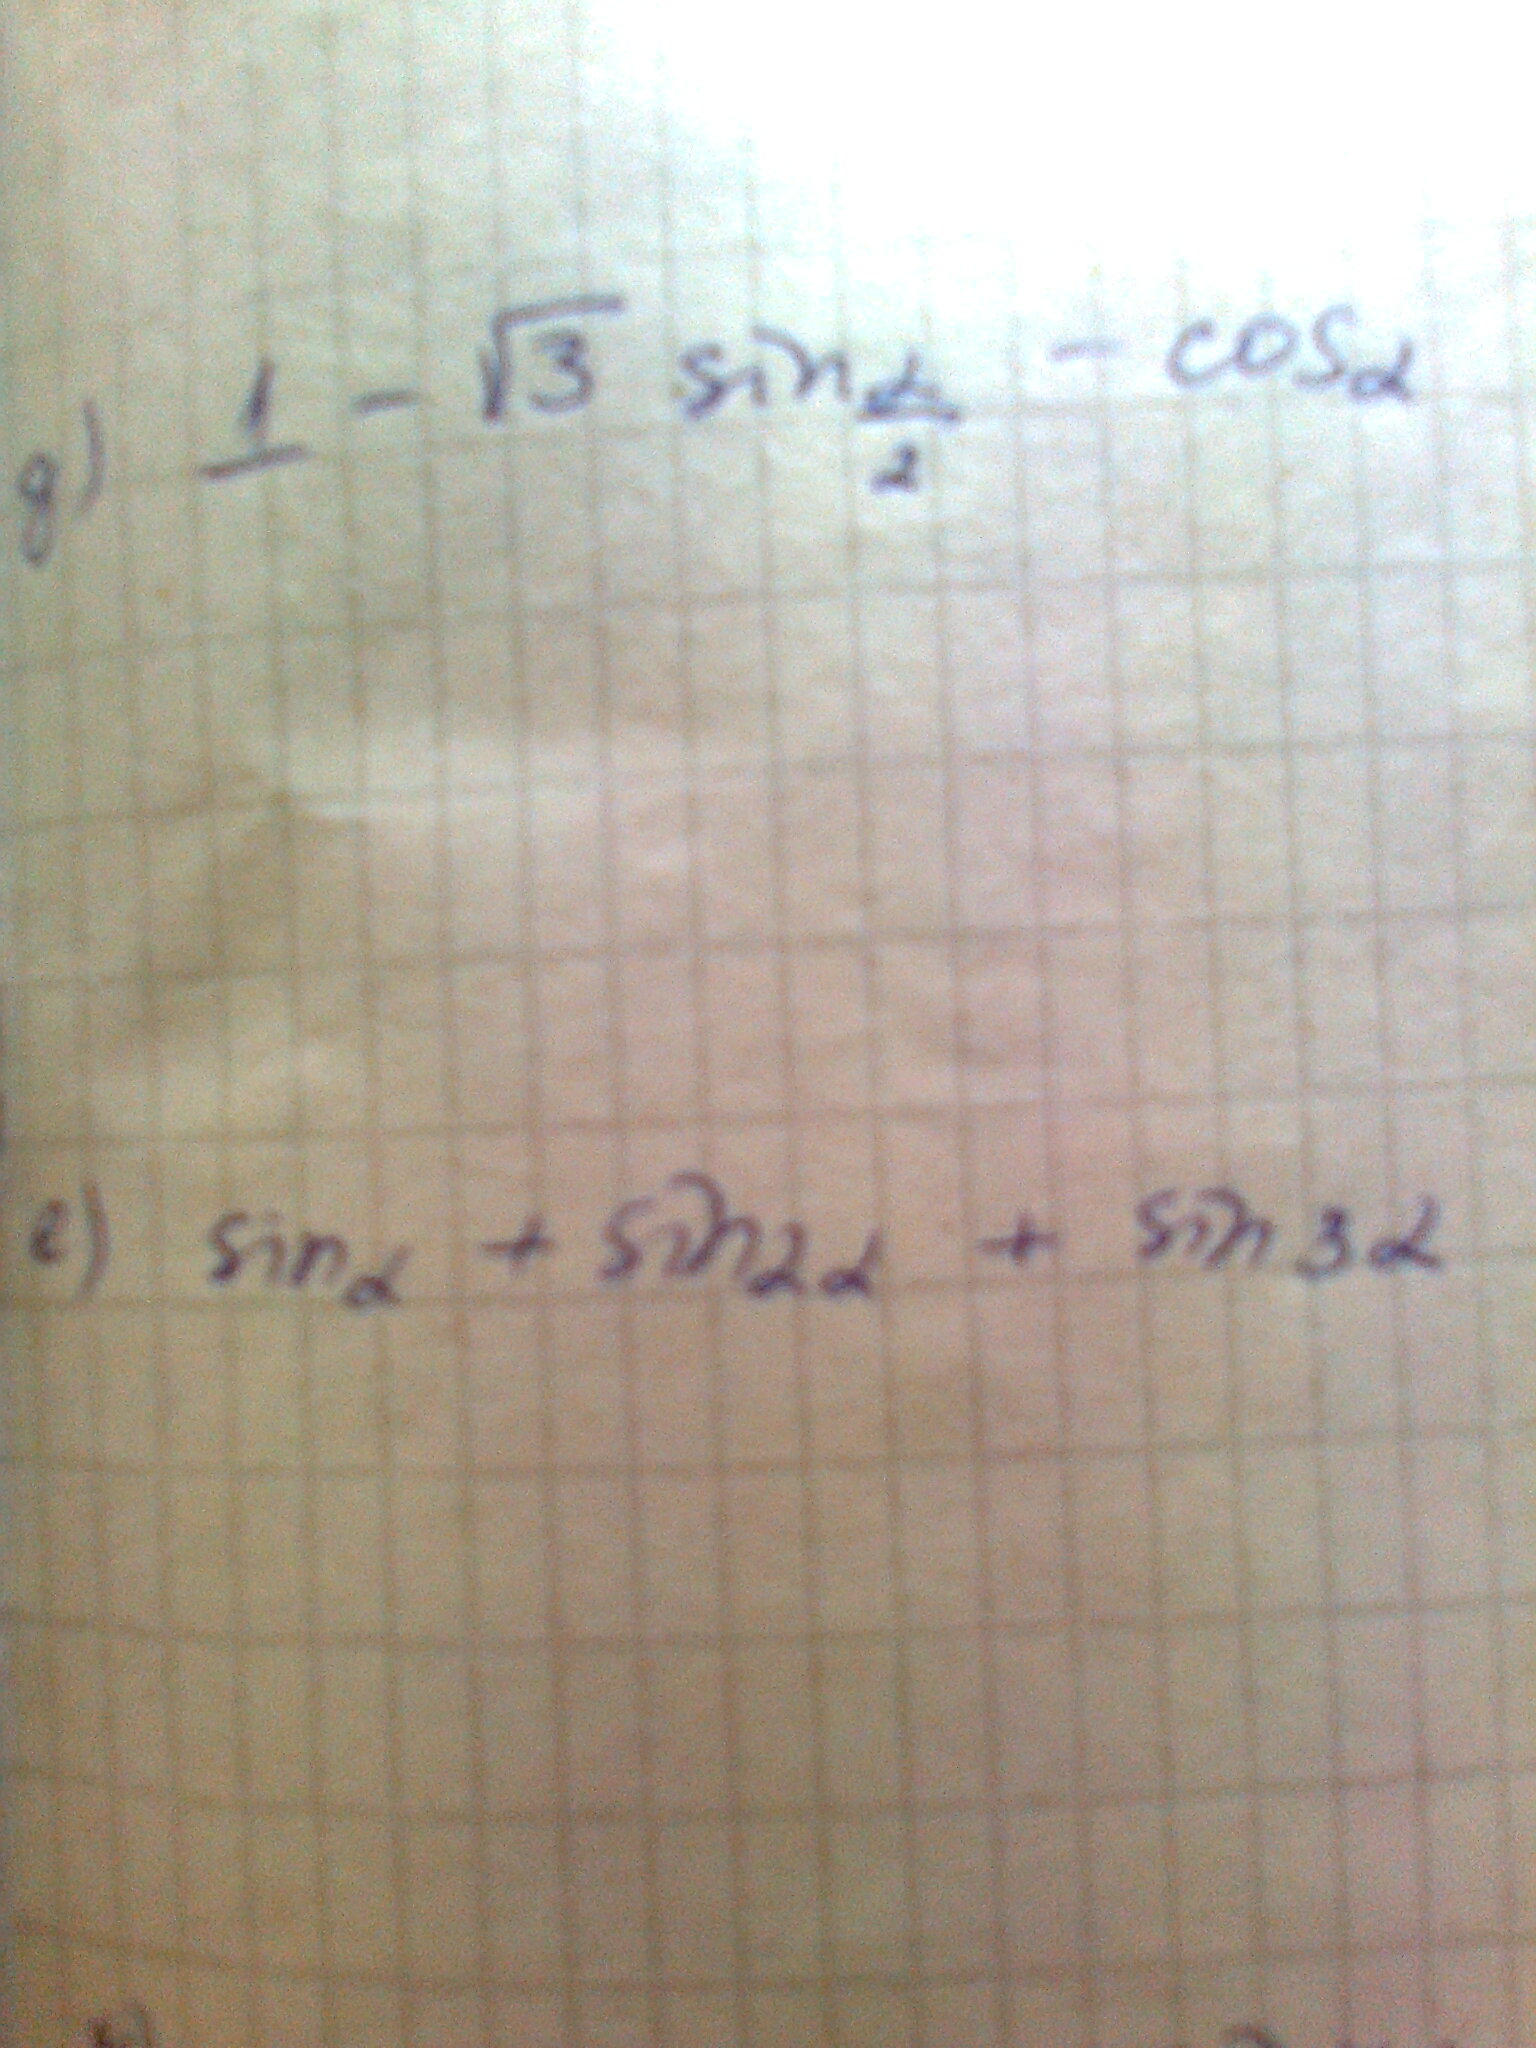 д) 1 - √3 sin α/2 - cos α
е) sin α + sin 2α + sin 3α